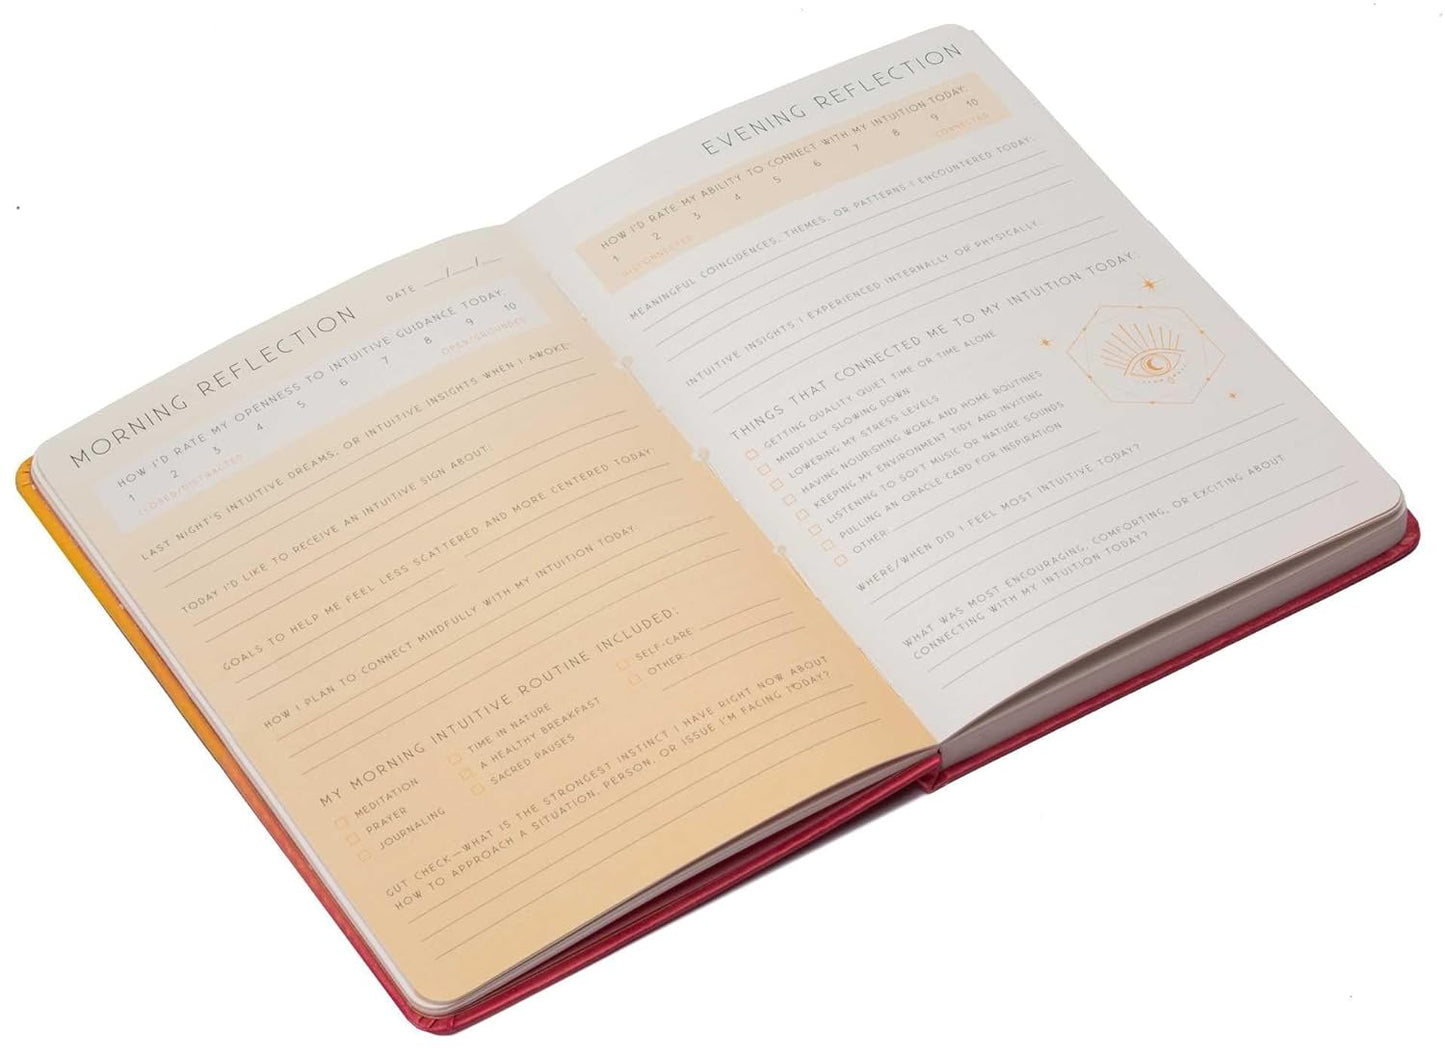 MORNING REFLECTION
DATE __/__/__
HOW I'D RATE MY OPENNESS TO INTUITIVE GUIDANCE TODAY:
1 2 3 4 5 6 7 8 9 10
CLOSED/DISTRACTED OPEN/GROUNDED
LAST NIGHT'S INTUITIVE DREAMS, OR INTUITIVE INSIGHTS WHEN I AWOKE:
TODAY I'D LIKE TO RECEIVE AN INTUITIVE SIGN ABOUT:
GOALS TO HELP ME FEEL LESS SCATTERED AND MORE CENTERED TODAY:
HOW I PLAN TO CONNECT MINDFULLY WITH MY INTUITION TODAY:
MY MORNING INTUITIVE ROUTINE INCLUDED:
MEDITATION
PRAYER
JOURNALING
TIME IN NATURE
A HEALTHY BREAKFAST
SACRED PAUSES
SELF-CARE:
OTHER:
GUT CHECK—WHAT IS THE STRONGEST INSTINCT I HAVE RIGHT NOW ABOUT
HOW TO APPROACH A SITUATION, PERSON, OR ISSUE I'M FACING TODAY?
EVENING REFLECTION
HOW I'D RATE MY ABILITY TO CONNECT WITH MY INTUITION TODAY:
1 2 3 4 5 6 7 8 9 10
DISCONNECTED CONNECTED
MEANINGFUL COINCIDENCES, THEMES, OR PATTERNS I ENCOUNTERED TODAY:
INTUITIVE INSIGHTS I EXPERIENCED INTERNALLY OR PHYSICALLY:
THINGS THAT CONNECTED ME TO MY INTUITION TODAY:
GETTING QUALITY QUIET TIME OR TIME ALONE
MINDFULLY SLOWING DOWN
LOWERING MY STRESS LEVELS
HAVING NOURISHING WORK AND HOME ROUTINES
KEEPING MY ENVIRONMENT TIDY AND INVITING
LISTENING TO SOFT MUSIC OR NATURE SOUNDS
PULLING AN ORACLE CARD FOR INSPIRATION
OTHER:
WHERE/WHEN DID I FEEL MOST INTUITIVE TODAY?
WHAT WAS MOST ENCOURAGING, COMFORTING, OR EXCITING ABOUT
CONNECTING WITH MY INTUITION TODAY?